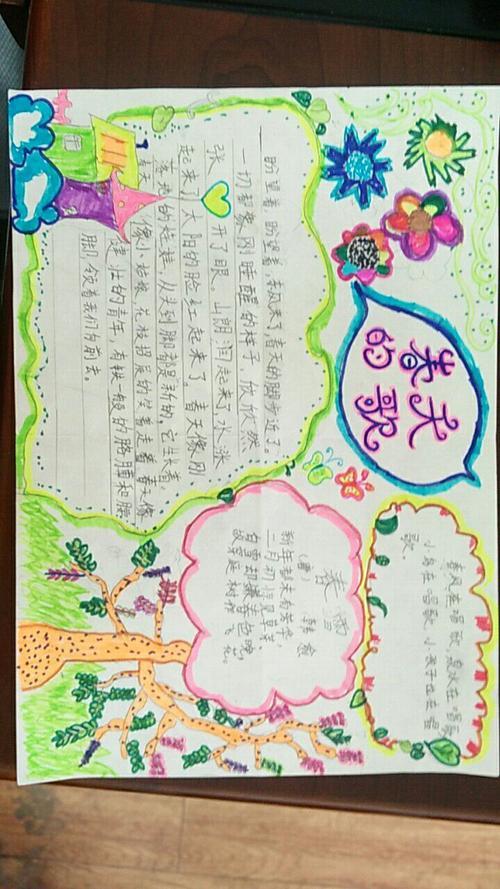 春天
的歌
春风在唱歌,泉水在唱
小鸟在唱歌 小孩子也在唱
歌
春雪
(唐) 韩愈
新年都未有芳华,
二月初惊见草芽。
白雪却嫌春色晚,
故穿庭树作飞花。
盼望着,盼望着,东风来了,春天的脚步近了。
一切都像刚睡醒的样子,欣欣然
张开了眼。山朗润起来了,水涨
起来了,太阳的脸红起来了。春天像刚
落地的娃娃,从头到脚都是新的,它生长着,
春天像小姑娘,花枝招展的笑着走着。春天像
健壮的青年,有铁一般的胳膊和腰
脚,领着我们向前去。